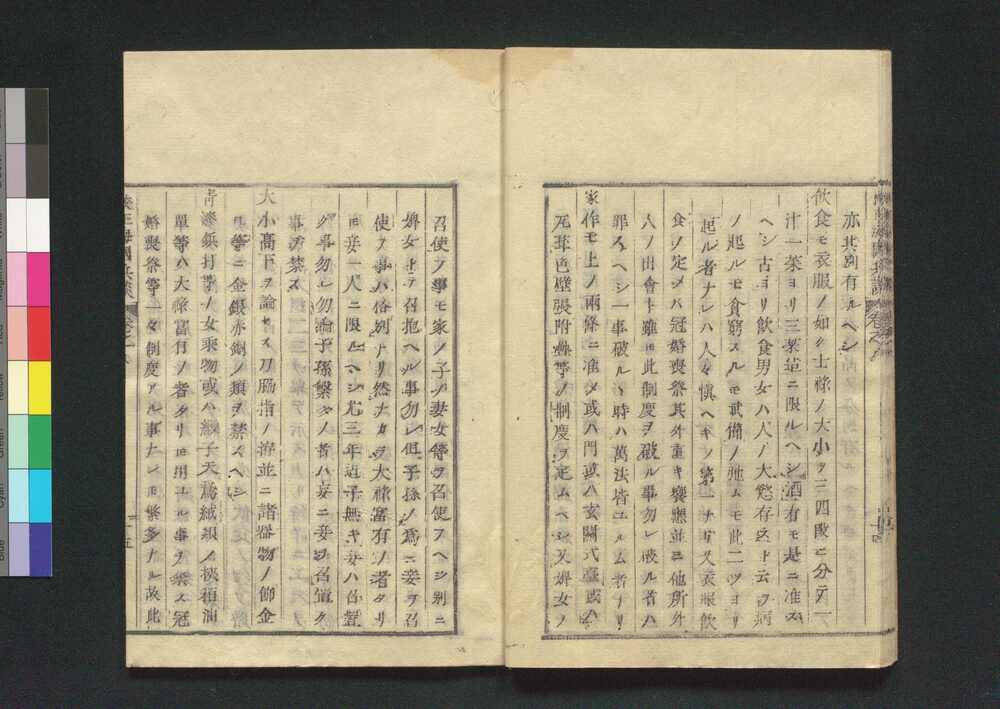 亦其別有ルヘシ
飲食モ衣服ノ如ク士祿ノ大小ヲ三四段ニ分テ一
汁一菜ヨリ三菜迄ニ限ルヘシ酒有モ是ニ准ス
ヘシ古ヨリ飲食男女ハ人ノ大慾存スト云ヲ病
ノ起ルモ貧窮スルモ武備ノ弛ムモ此二ツヨリ
起ル者ナレハ人々愼ヘキノ第一ナリ又衣服飲
食ノ定メハ冠婚喪祭其外重キ饗應並ニ他所外
人ノ出會ト雖モ此制度ヲ破ル事勿レ破ル者ハ
罪スヘシ一事破ルヽ時ハ萬法皆ユルム者ナリ
家作モ上ノ兩條ニ准シ或ハ門或ハ玄關式臺或ハ
瓦葺色壁張附疊等ノ制度ヲ定ムヘシ又婢女ノ
召使フ事モ家ノ子ノ妻女等ヲ召使フヘシ別ニ
婢女トテ召抱ヘル事勿レ但子孫ノ爲ニ妾ヲ召
使フ事ハ格別ナリ然ナカラ大祿富有ノ者タリ
モ妾一人ニ限ルヘシ尤三年迄子無キ妾ハ召置
ク事勿レ勿論子孫繁多ノ者ハ妾ニ妾ヲ召置ク
事ヲ禁ス
大小高下ヲ論セス刀脇指ノ拵並ニ諸器物ノ飾金
具等ニ金銀赤銅ノ類ヲ禁スヘシ
青漆鋲打等ノ女乘物或ハ緞子天鵞絨緞ノ挾箱油
單等ハ大祿富有ノ者タリ𪜈用ユル事ヲ禁ス冠
婚喪祭等一々制度アル事ナレ𪜈繁多ナル故此